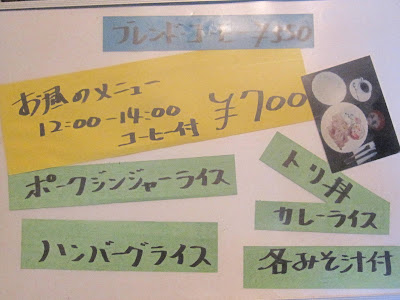 ブレンドコーヒー ¥350
お昼のメニュー
12:00-14:00
コーヒー付
¥700
ポークジンジャーライス
トリ丼
カレーライス
ハンバーグライス
各みそ汁付